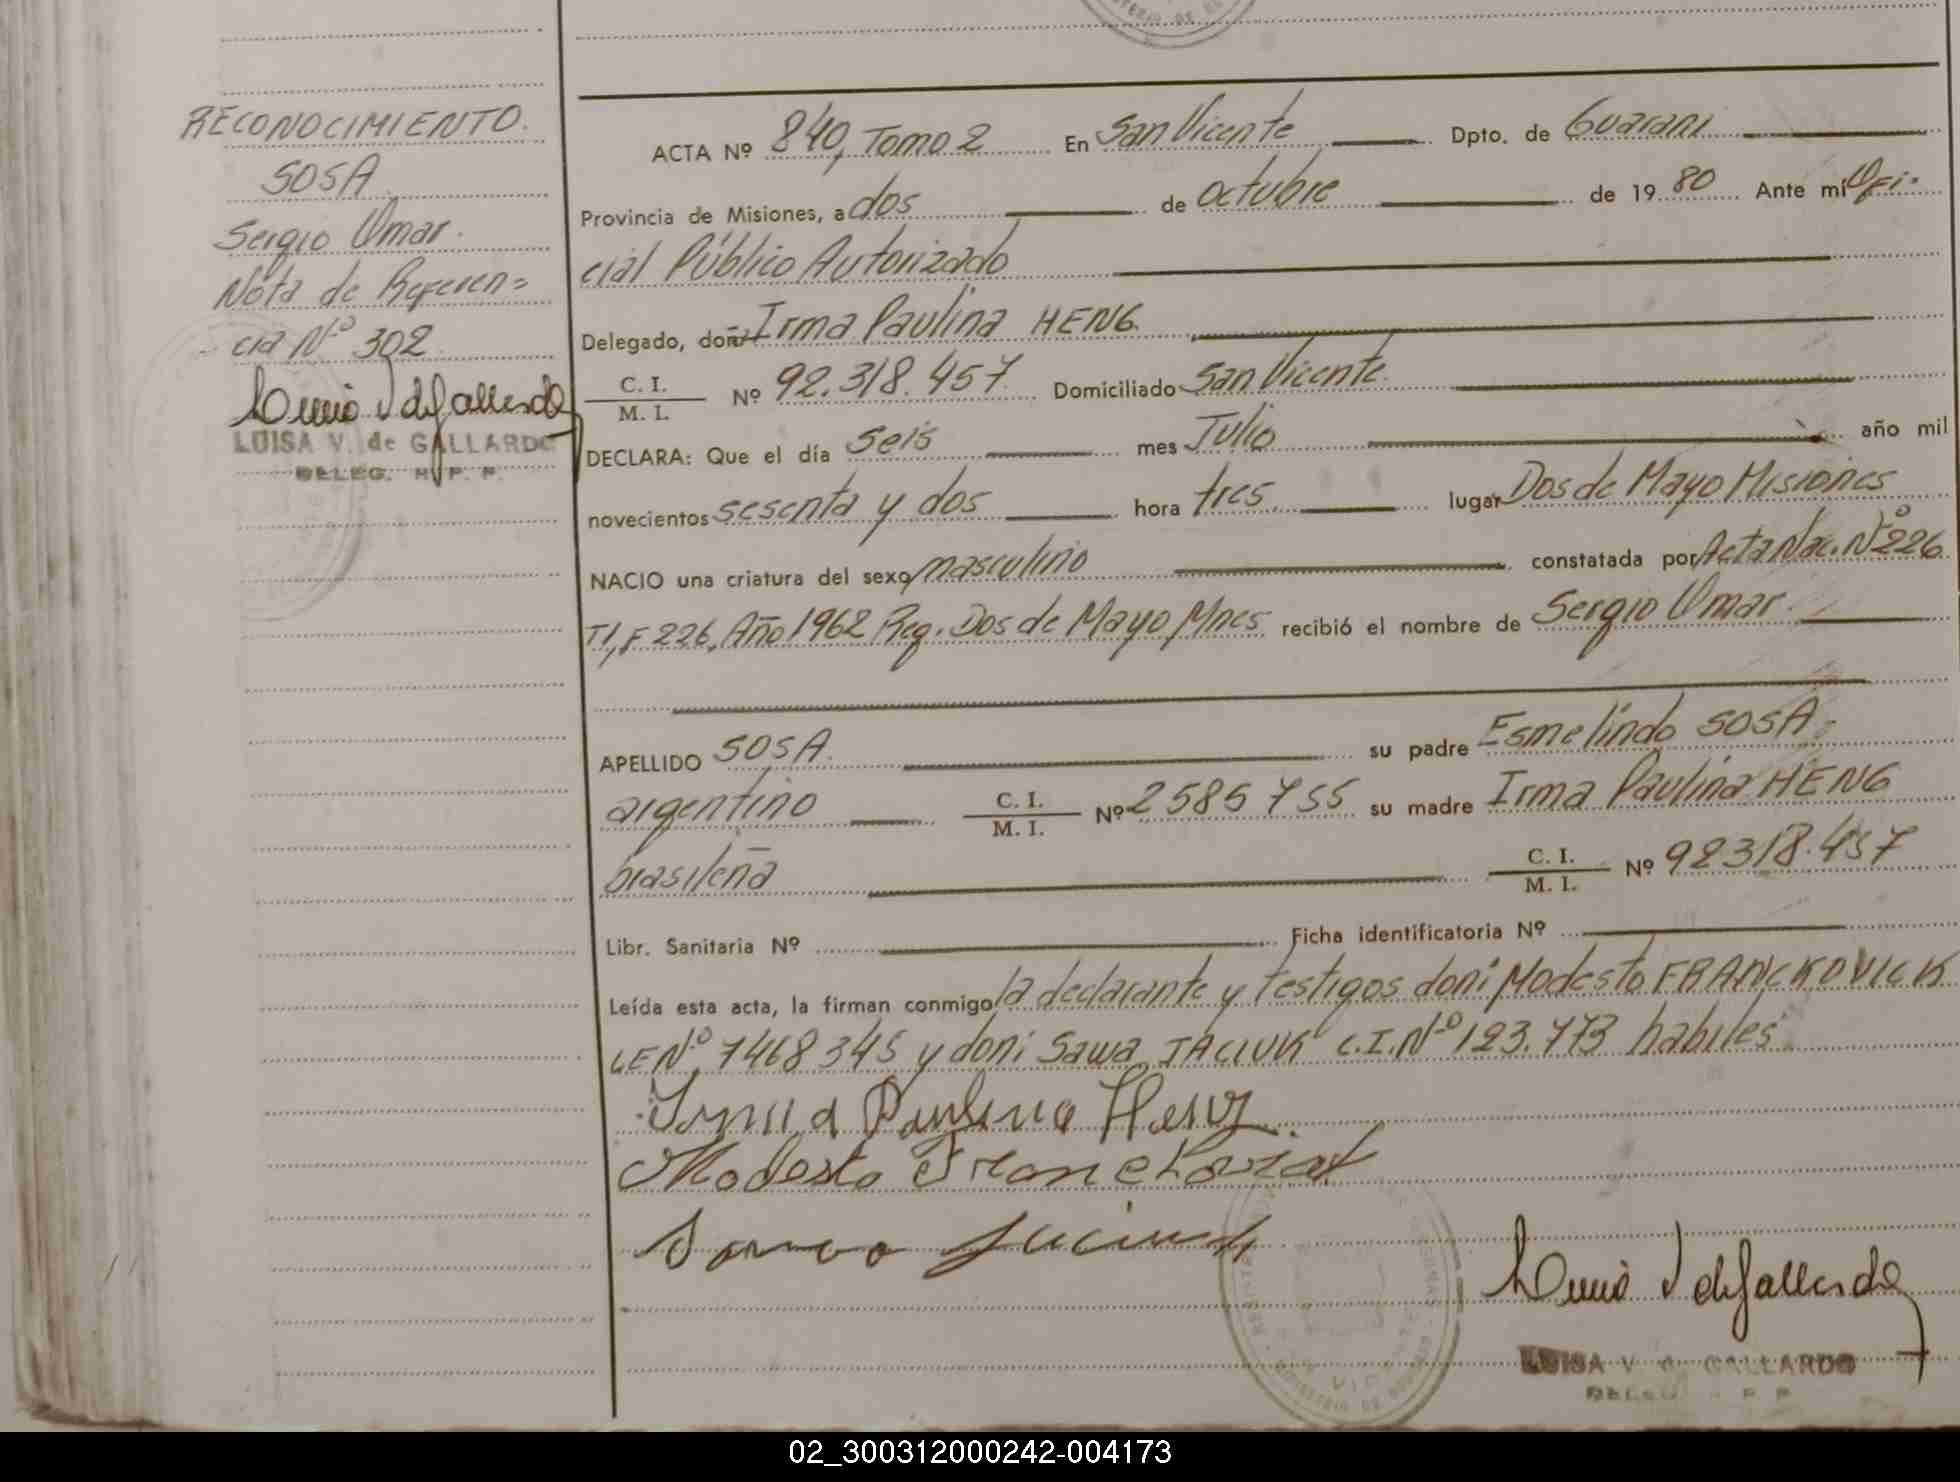 RECONOCIMIENTO.
SOSA
Sergio Omar.
Nota de Referen=
cia Nº 302
LUISA V. de GALLARDO
DELEG. R. P. P.
ACTA Nº 840, Tomo 2 En San Vicente Dpto. de Guarani
Provincia de Misiones, a dos de octubre de 1980 Ante mi Ofi-
cial Público Autorizado
Delegado, doña Irma Paulina HENG
C. I. / M. I. Nº 92.318.457 Domiciliado San Vicente.
DECLARA: Que el día seis mes Julio año mil
novecientos sesenta y dos hora tres lugar Dos de Mayo Misiones
NACIO una criatura del sexo masculino constatada por Acta Nac. Nº 226
T1, F 226, Año 1962 Reg. Dos de Mayo Mnes recibió el nombre de Sergio Omar.
APELLIDO SOSA. su padre Esmelindo SOSA-
argentino C. I. / M. I. Nº 2585755 su madre Irma Paulina HENG
brasileña C. I. / M. I. Nº 92318.457
Libr. Sanitaria Nº Ficha identificatoria Nº
Leída esta acta, la firman conmigo la declarante y testigos don: Modesto FRANCKOVICK
LE Nº 7468345 y don: Sawa JACIUK C.I. Nº 123.773 habiles
Irma Paulina Heng.
Modesto Franckoviak
LUISA V. d. GALLARDO
DELEG. R. P. P.
02_300312000242-004173